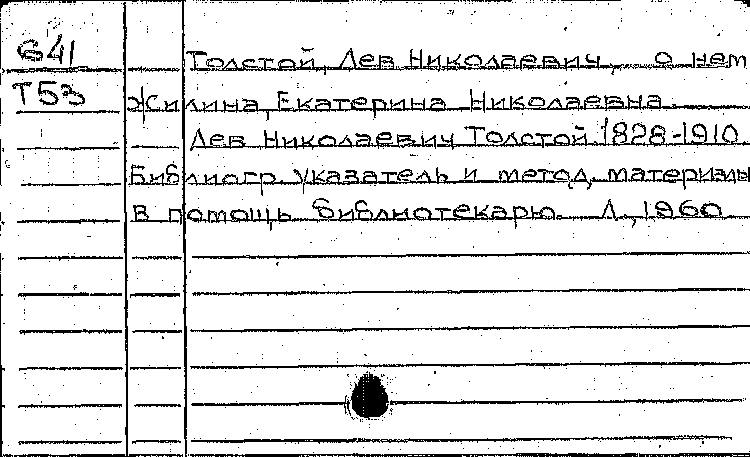 641 Толстой, Лев Николаевич, о нем
Т53 Жилина, Екатерина Николаевна.
Лев Николаевич Толстой. 1828-1910.
Библиогр. указатель и метод. материалы
в помощь библиотекарю. Л., 1960